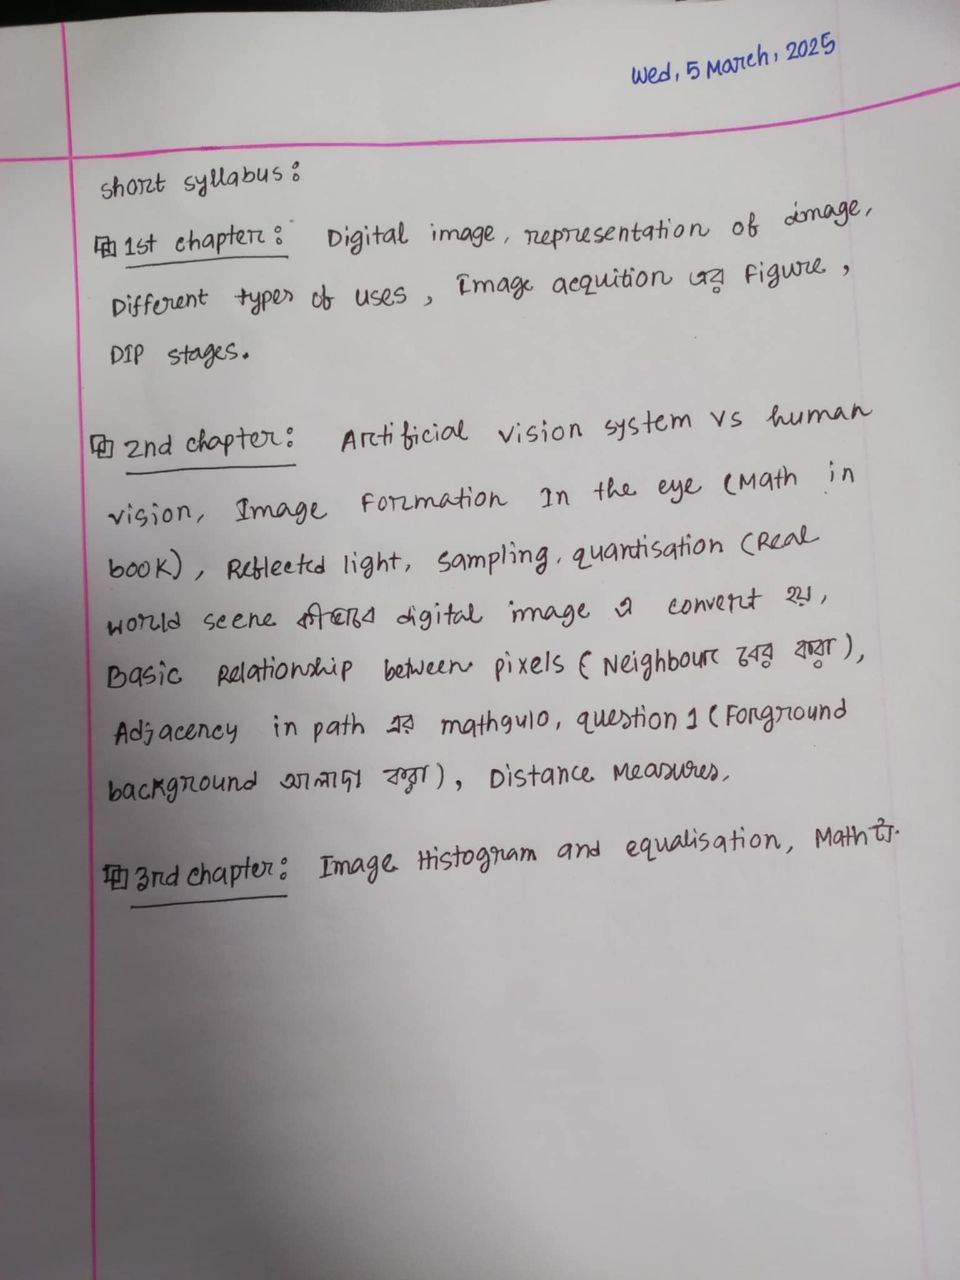 Wed, 5 March, 2025
short syllabus:
1st chapter: Digital image, representation of image,
Different types of uses, Image acquition এর Figure,
DIP stages.
2nd chapter: Artificial vision system vs human
vision, Image Formation In the eye (Math in
book), Reflected light, sampling, quantisation (Real
world scene কীভাবে digital image এ convert হয়,
Basic Relationship between pixels (Neighbour বের করা),
Adjacency in path এর mathgulo, question 1 (Forground
background আলাদা করা), Distance Measures,
3rd chapter: Image Histogram and equalisation, Math টা.